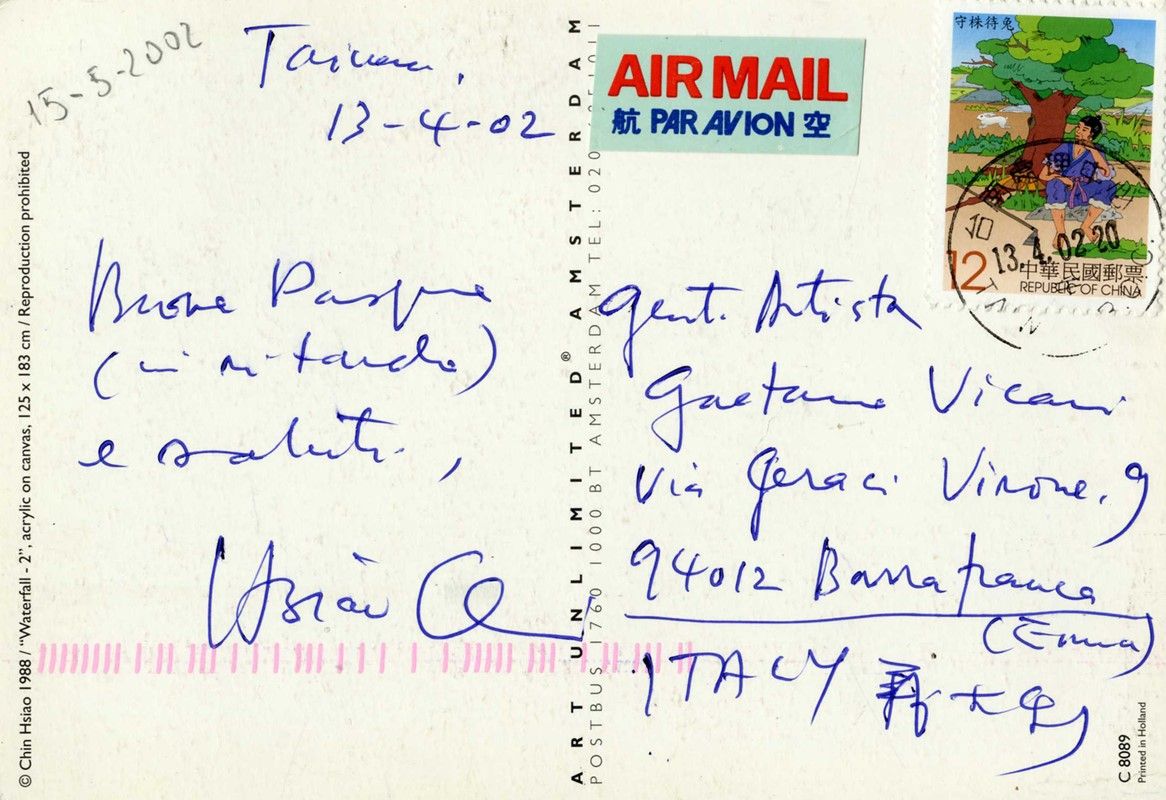 15-5-2002
Taiwan,
13-4-02
Buone Pasque
(in ritardo)
e saluti,
Hsiao Ch
© Chin Hsiao 1988 / "Waterfall - 2", acrylic on canvas, 125 x 183 cm / Reproduction prohibited
ART UNLIMITED® AMSTERDAM
POSTBUS 1760 1000 BT AMSTERDAM TEL: 020
AIR MAIL
航 PAR AVION 空
守株待兔
12
中華民國郵票
REPUBLIC OF CHINA
13.4.02.20
Gent. Artista
Gaetano Vicari
Via Geraci Virone, 9
94012 Barrafranca
(Enna)
ITALY
C 8089
Printed in Holland